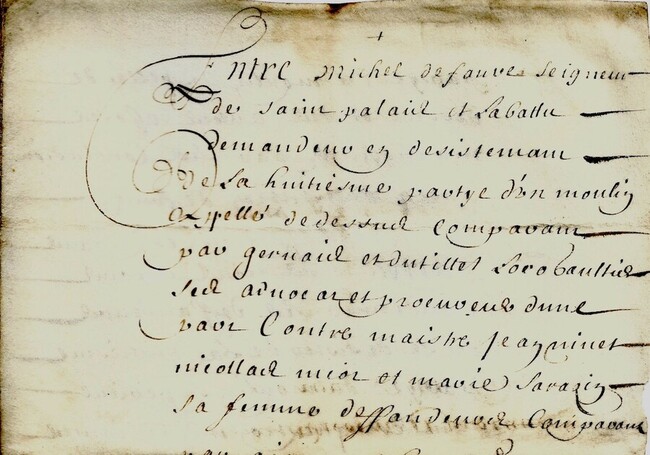 Entre michel de fauve seigneur
de saint palaid et Laballu
demandeur en desistemant
de La huitiesme partye d'un moulin
appellé de dessud Comparant
par gervaid et dutillet
sed advocat et procureur dune
part Contre maistre Jean ninet
nicollad micot et marie Sarazin
sa femme deffandeurd Comparant